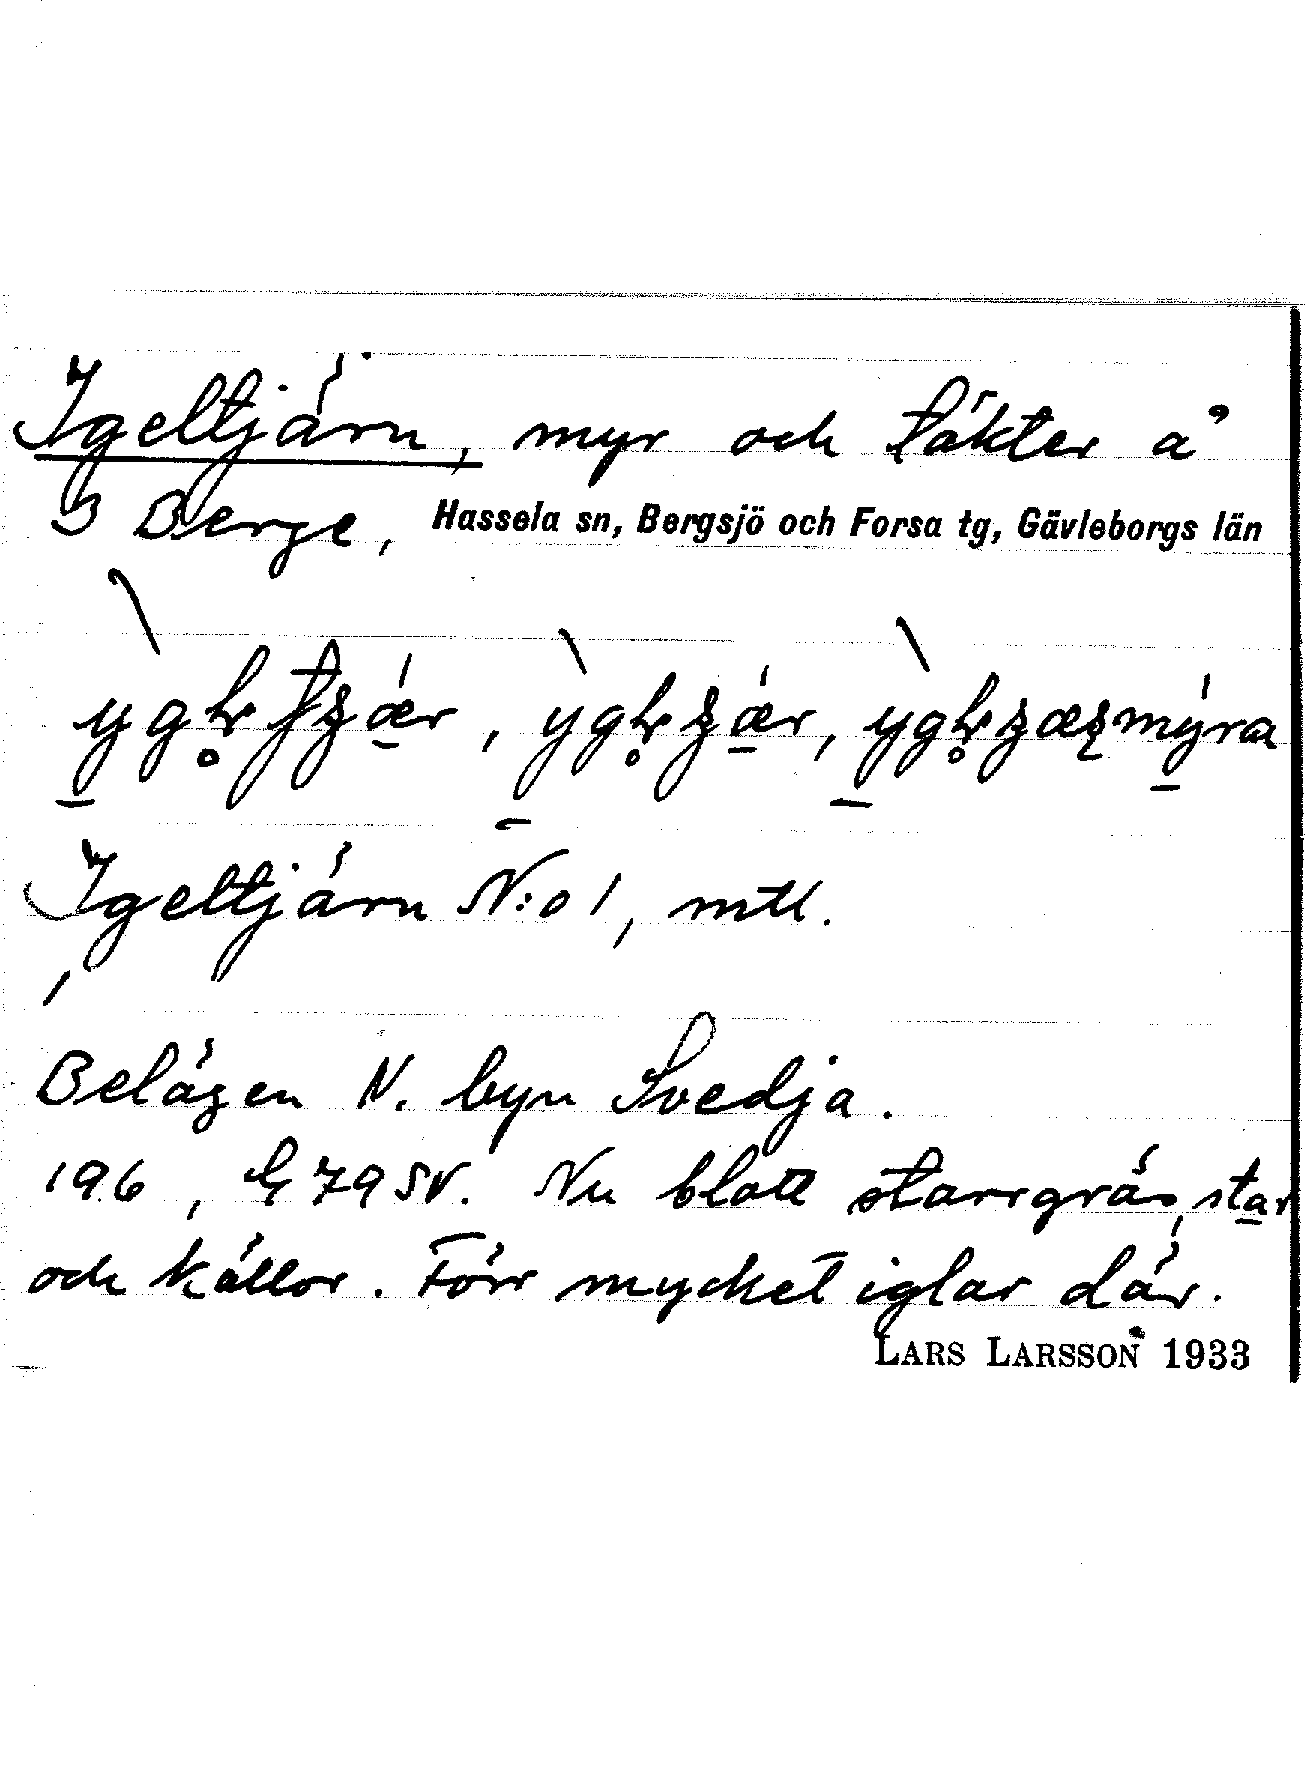 Igeltjärn, myr och täkter å
3 Berge, Hassela sn, Bergsjö och Forsa tg, Gävleborgs län
Igeltjärn N:o 1, mtl.
Belägen N. byn Svedja.
196, G 79 SV. Nu blott starrgräs, star
och källor. Förr mycket iglar där.
LARS LARSSON 1933